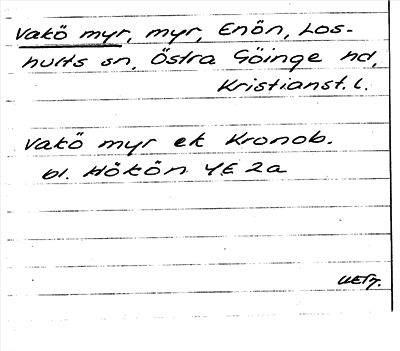 Vakö myr, myr, Enön, Los-
hults sn, Östra Göinge hd,
Kristianst. l.
Vakö myr ek Kronob.
bl. Hökön 4E 2a